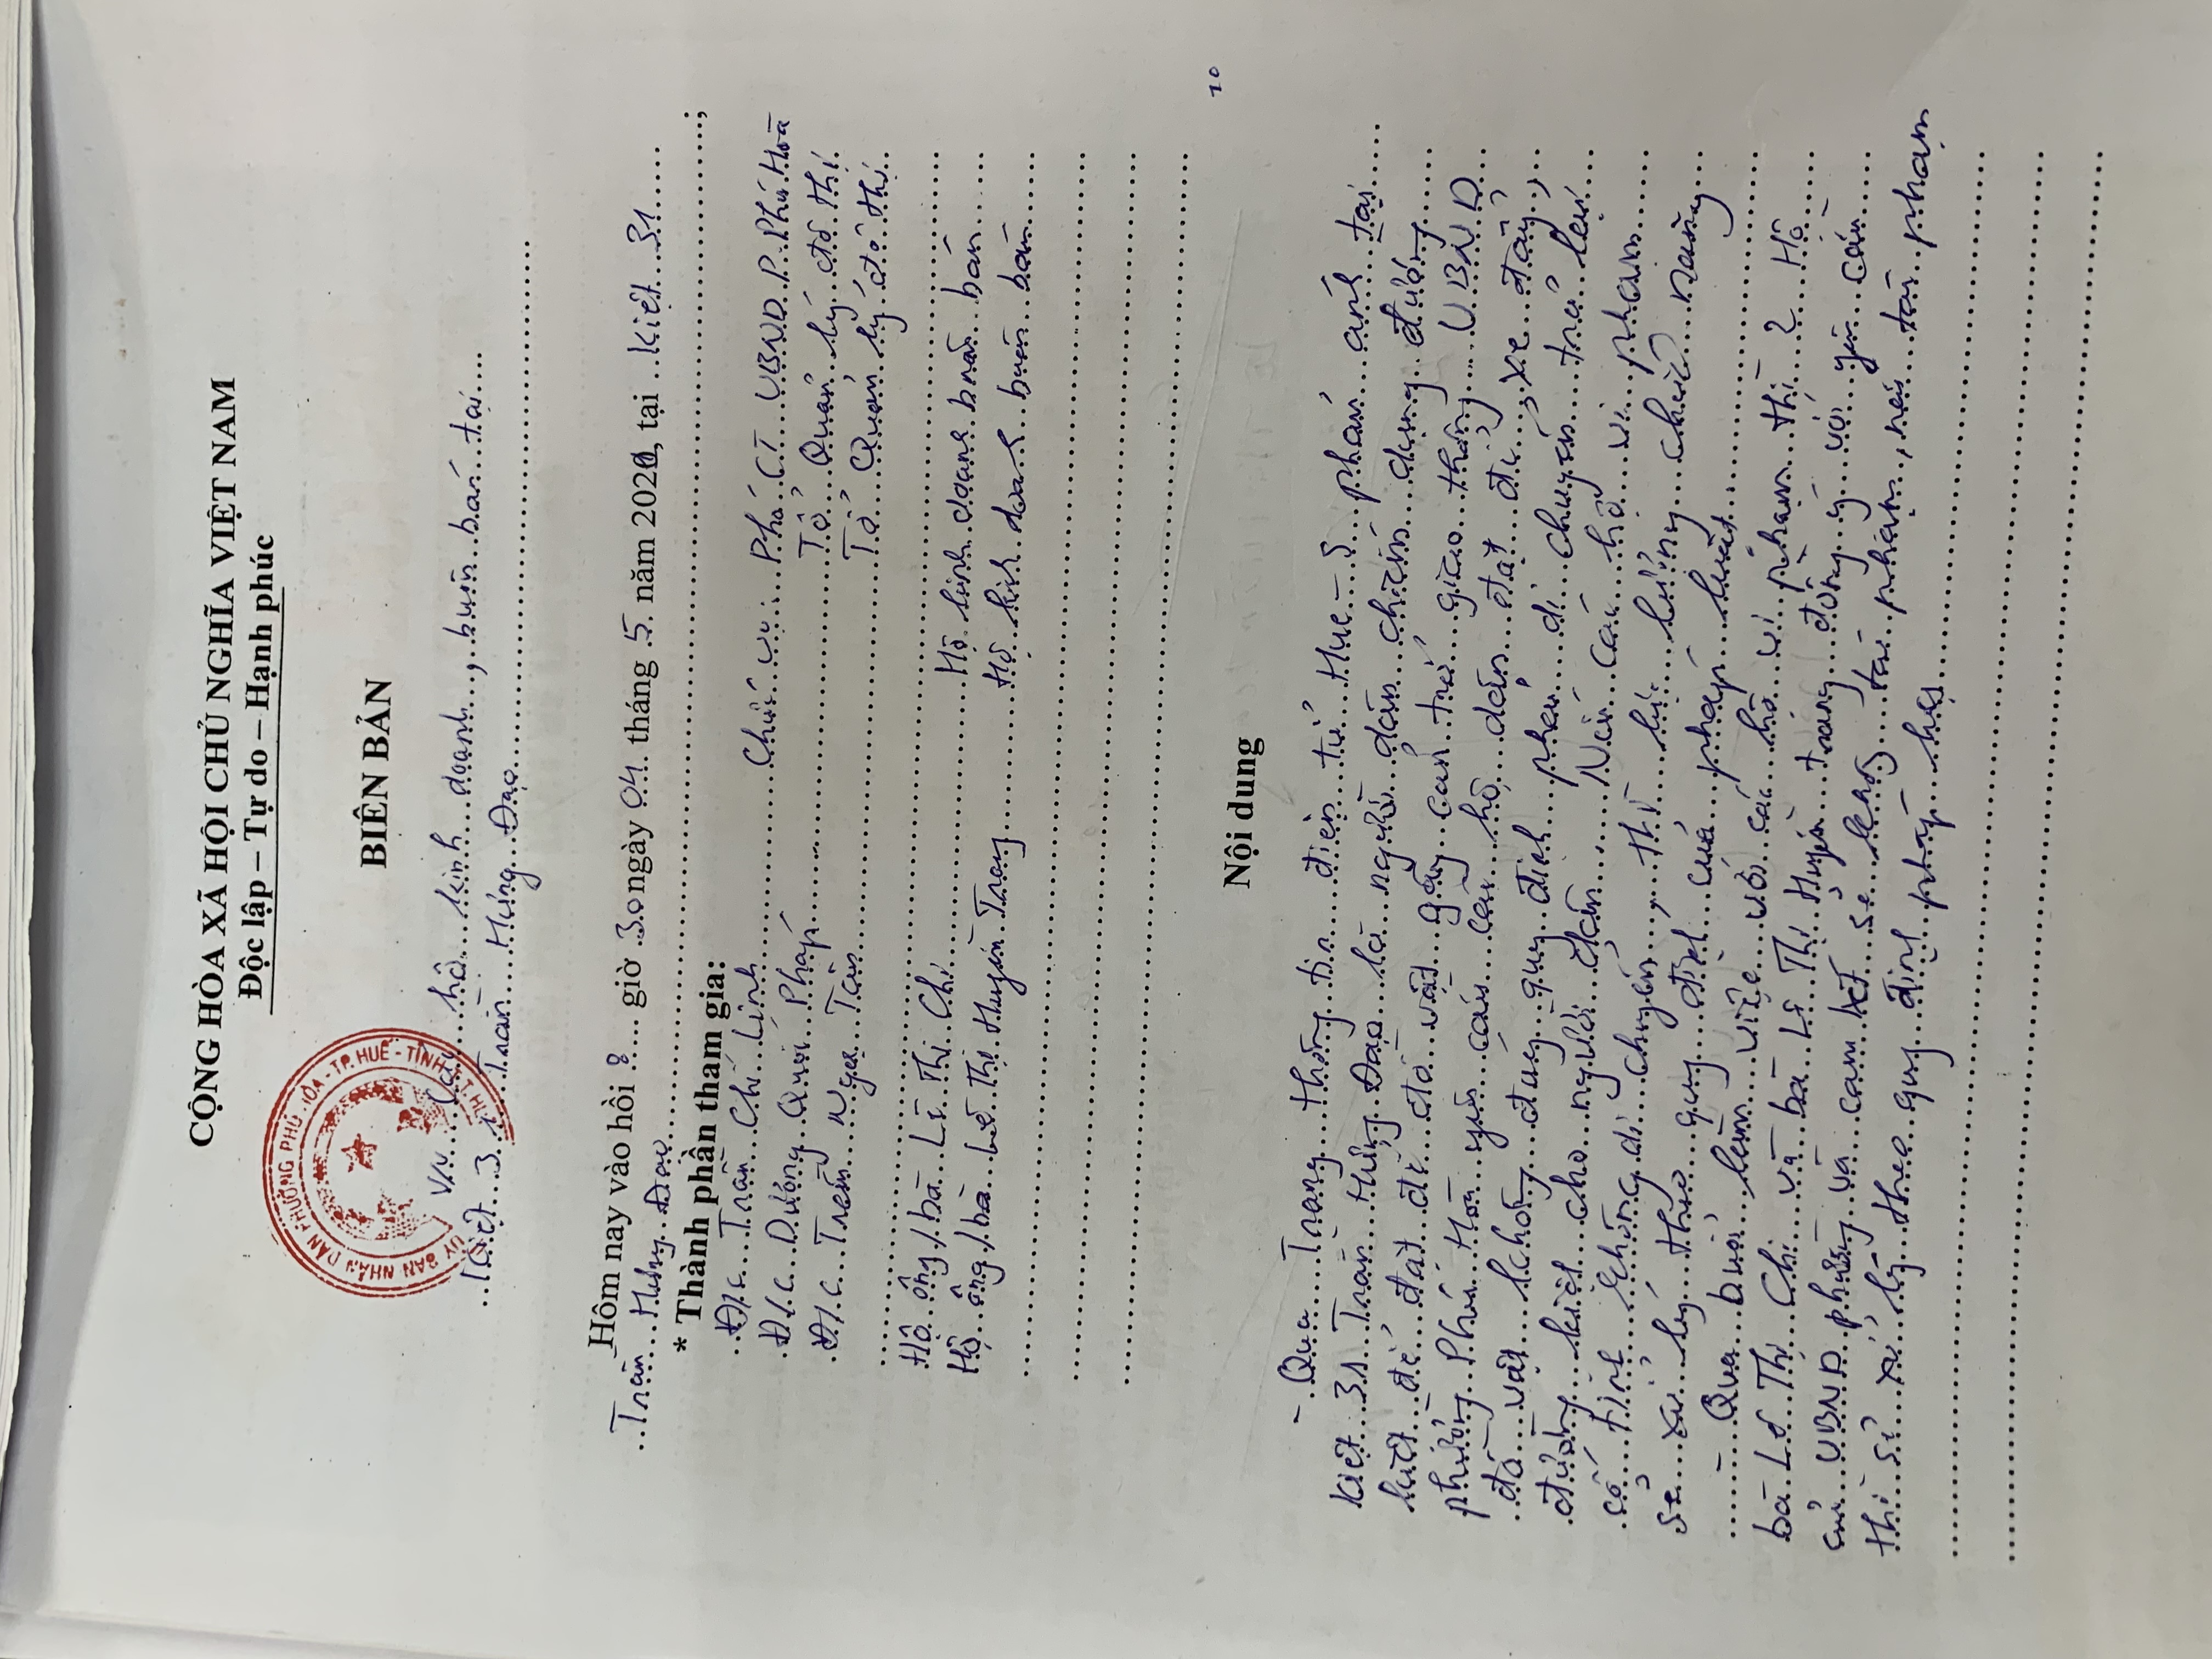 CỘNG HÒA XÃ HỘI CHỦ NGHĨA VIỆT NAM
Độc lập – Tự do – Hạnh phúc
ỦY BAN NHÂN DÂN PHƯỜNG PHÚ HÒA - TP.HUẾ - TỈNH T.T.HUẾ
BIÊN BẢN
V/v các hộ kinh doanh, buôn bán tại
Kiệt 31 Trần Hưng Đạo
Hôm nay vào hồi 8 giờ 30 ngày 04 tháng 5 năm 2021, tại Kiệt 31
Trần Hưng Đạo
* Thành phần tham gia:
Đ/c Trần Chí Linh Chức vụ: Phó CT UBND P. Phú Hoà
Đ/c Dương Quới Pháp Tổ Quản lý đô thị
Đ/c Trần Ngọc Tân Tổ Quản lý đô thị
Hộ ông/bà Lê Thị Chi Hộ kinh doanh buôn bán
Hộ ông/bà Lê Thị Huyền Trang Hộ kinh doanh buôn bán
Nội dung
- Qua Trang thông tin điện tử Hue-S phản ánh tại
Kiệt 31 Trần Hưng Đạo là người dân chiếm dụng đường
kiệt để đặt để đồ vật gây cản trở giao thông UBND
phường Phú Hoà yêu cầu các hộ dân đặt để xe đẩy,
đồ vật không đúng quy định phải di chuyển trả lại
đường kiệt cho người dân. Nếu các hộ vi phạm
cố tình không di chuyển, thì lực lượng chức năng
sẽ xử lý theo quy định của pháp luật
- Qua buổi làm việc với các hộ vi phạm thì 2 Hộ
bà Lê Thị Chi và bà Lê Thị Huyền Trang đồng ý với yêu cầu
của UBND phường và cam kết sẽ không tái phạm, nếu tái phạm
thì sẽ xử lý theo quy định pháp luật